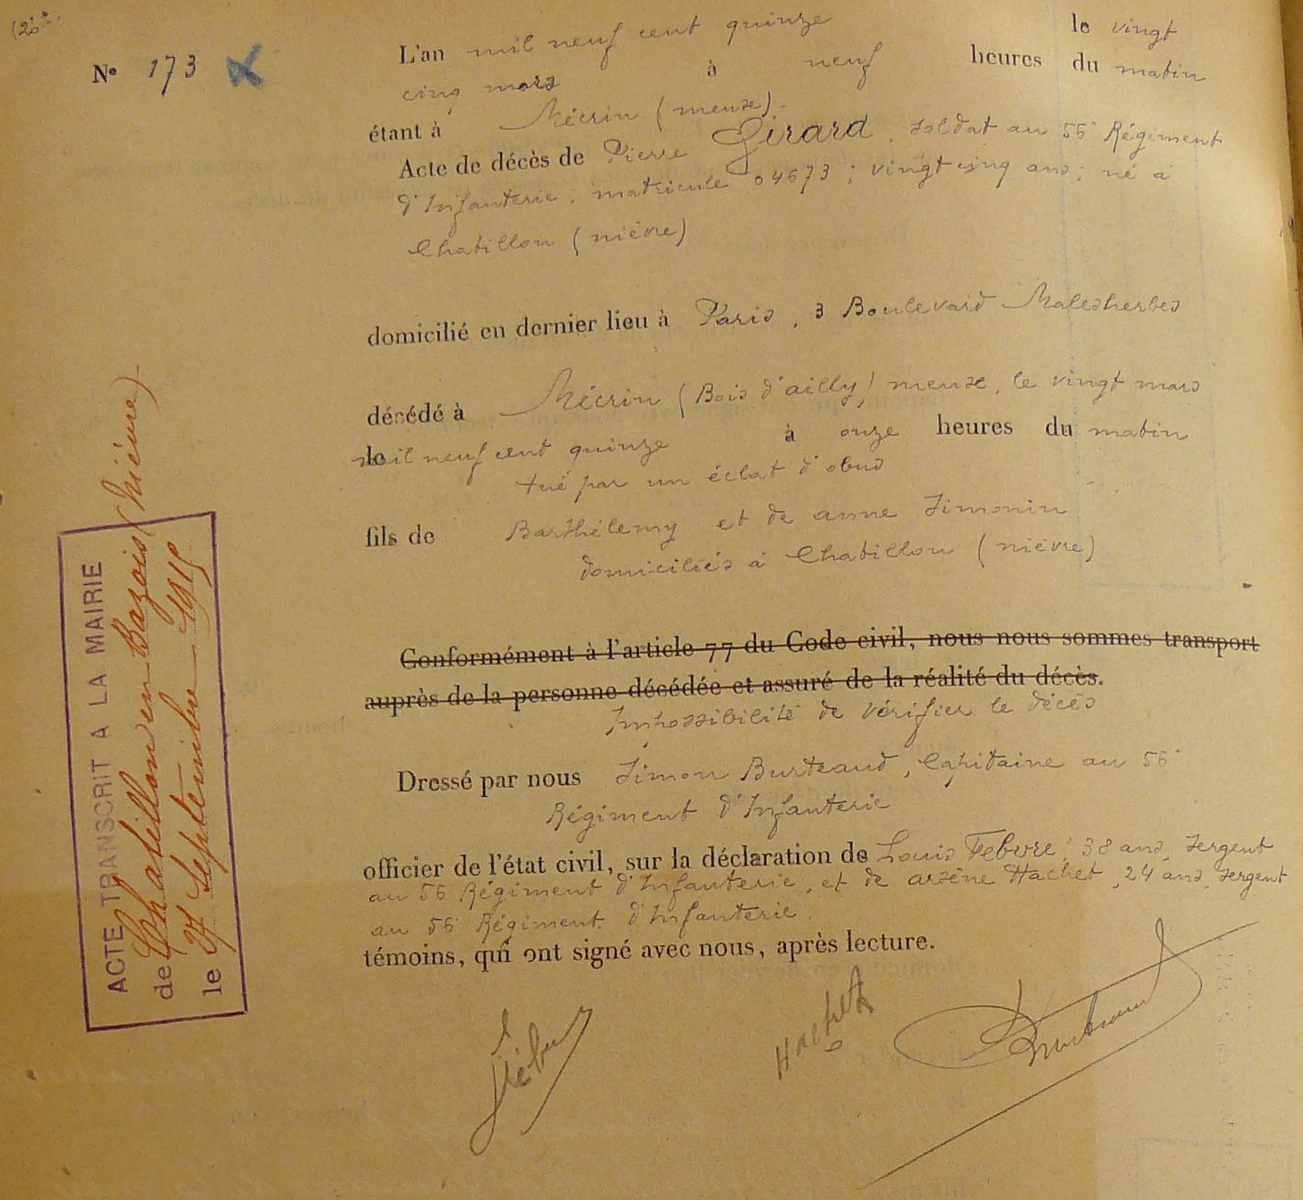 N° 173
L'an mil neuf cent quinze le vingt
cinq mars à neuf heures du matin
étant à Mécrin (meuse).
Acte de décès de Pierre Girard, soldat au 56° Régiment
d'Infanterie; matricule 04673; vingt cinq ans; né à
Chatillon (nièvre)
domicilié en dernier lieu à Paris, 3 Boulevard Malesherbes
décédé à Mécrin (Bois d'ailly) meuse, le vingt mars
le mil neuf cent quinze à onze heures du matin
tué par un éclat d'obus
fils de Barthélemy et de anne Simonin
domiciliés à Chatillon (nièvre)
Conformément à l'article 77 du Code civil, nous nous sommes transport
auprès de la personne décédée et assuré de la réalité du décès.
Impossibilité de vérifier le décès
Dressé par nous Simon Burteaud, Capitaine au 56°
Régiment d'Infanterie
officier de l'état civil, sur la déclaration de Louis Febvre, 38 ans, sergent
au 56 Régiment d'Infanterie, et de arsène Hachet, 24 ans, sergent
au 56° Régiment d'Infanterie.
témoins, qui ont signé avec nous, après lecture.
Hachet
ACTE TRANSCRIT A LA MAIRIE
de Chatillon en Bazois (Nièvre)
le 27 Septembre 1915